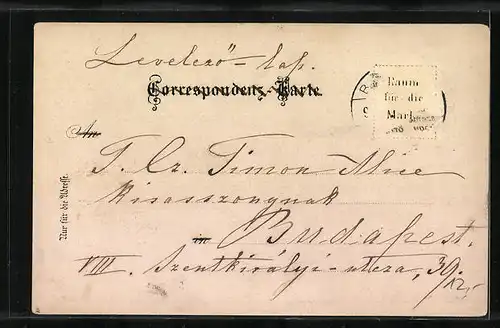 Levelező-lap.
Correspondenz-Karte.
Raum
für die
Marke
An
T. Cz. Timon Alice
kisasszonynak
in Budapest.
VIII. Szentkirályi-utcza, 39.
Nur für die Adresse.